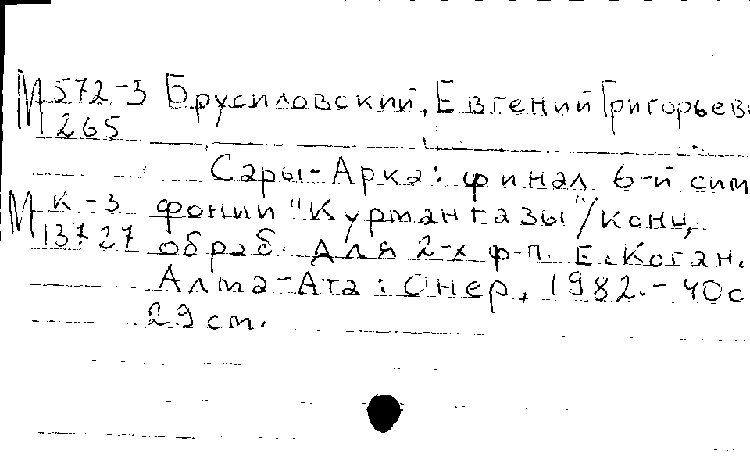 М 572-3 Брусиловский, Евгений Григорьев
265
Сары-Арка: финал 6-й сим
М К-3 фонии "Курмангазы"/конц.
13727 обраб. для 2-х ф-п. Е. Коган.
Алма-Ата: Онер, 1982.- 40с
29 см.